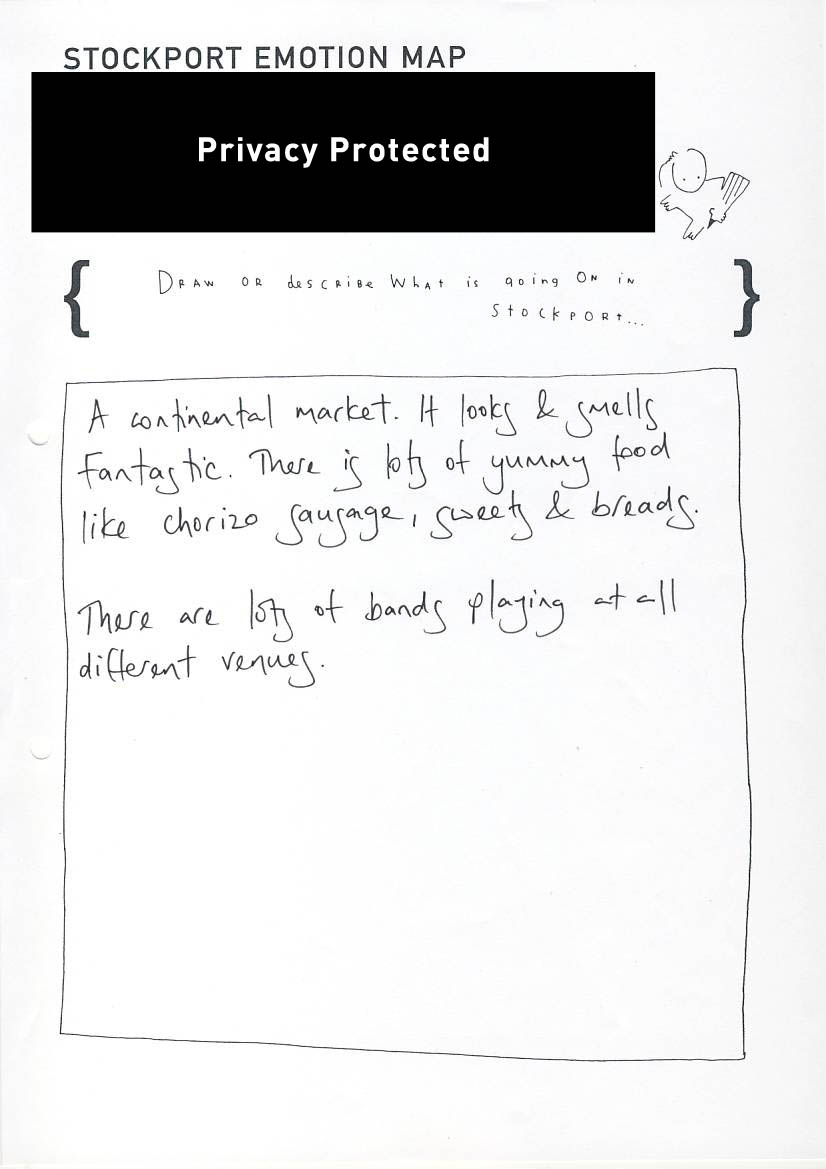 STOCKPORT EMOTION MAP
Privacy Protected
DRAW OR describe What is going ON iN
StockPORt...
A continental market. It looks & smells
Fantastic. There is lots of yummy food
like chorizo sausage, sweets & breads.
There are lots of bands playing at all
different venues.